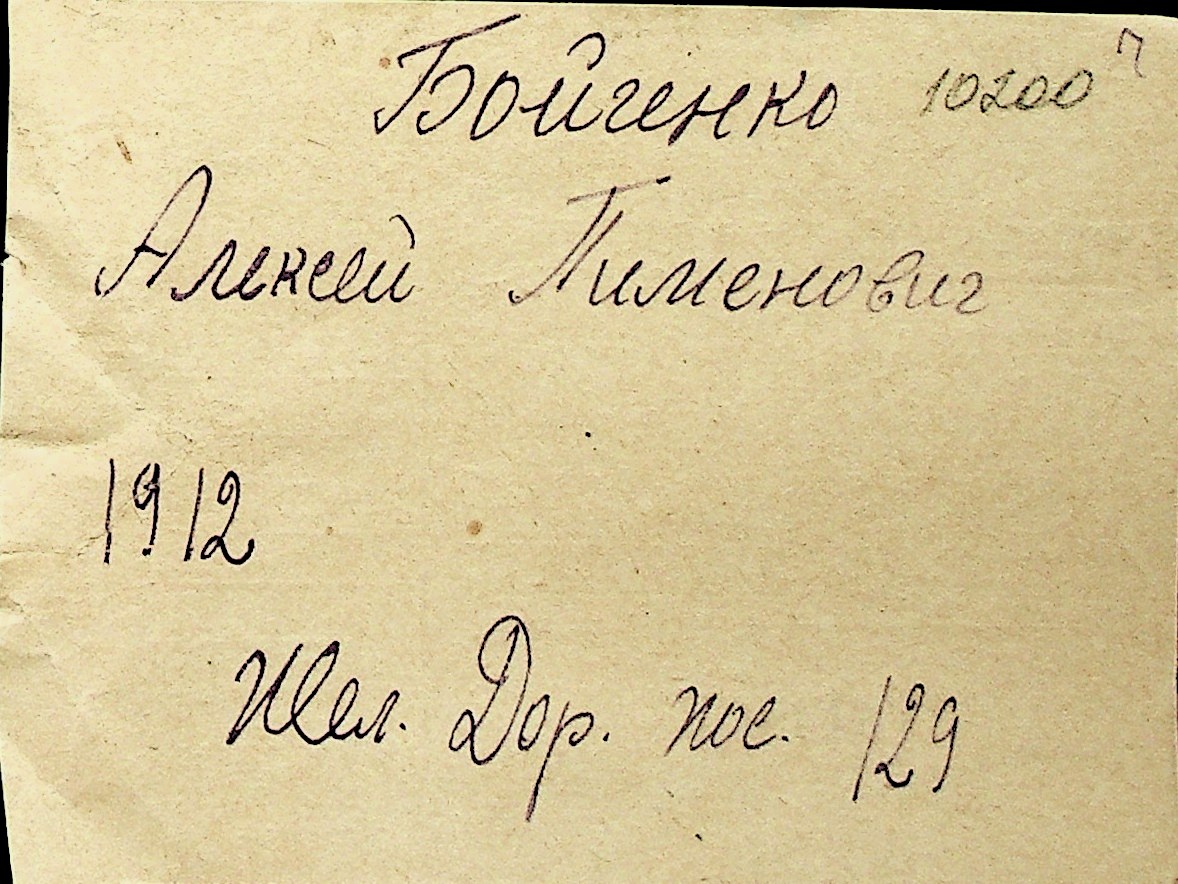 Бойченко 10200 П
Алексей Пименович
1912
Жел. Дор. пос. 129